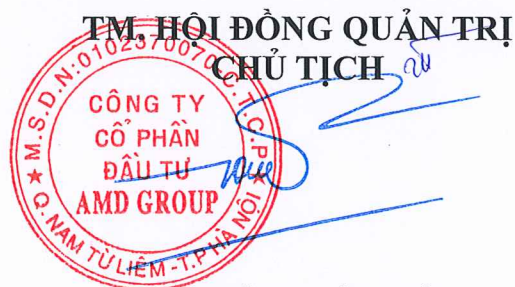 TM. HỘI ĐỒNG QUẢN TRỊ
CHỦ TỊCH
M.S.D.N:0102370070-C.T.C.P
CÔNG TY
CỔ PHẦN
ĐẦU TƯ
AMD GROUP
Q. NAM TỪ LIÊM - T.P HÀ NỘI